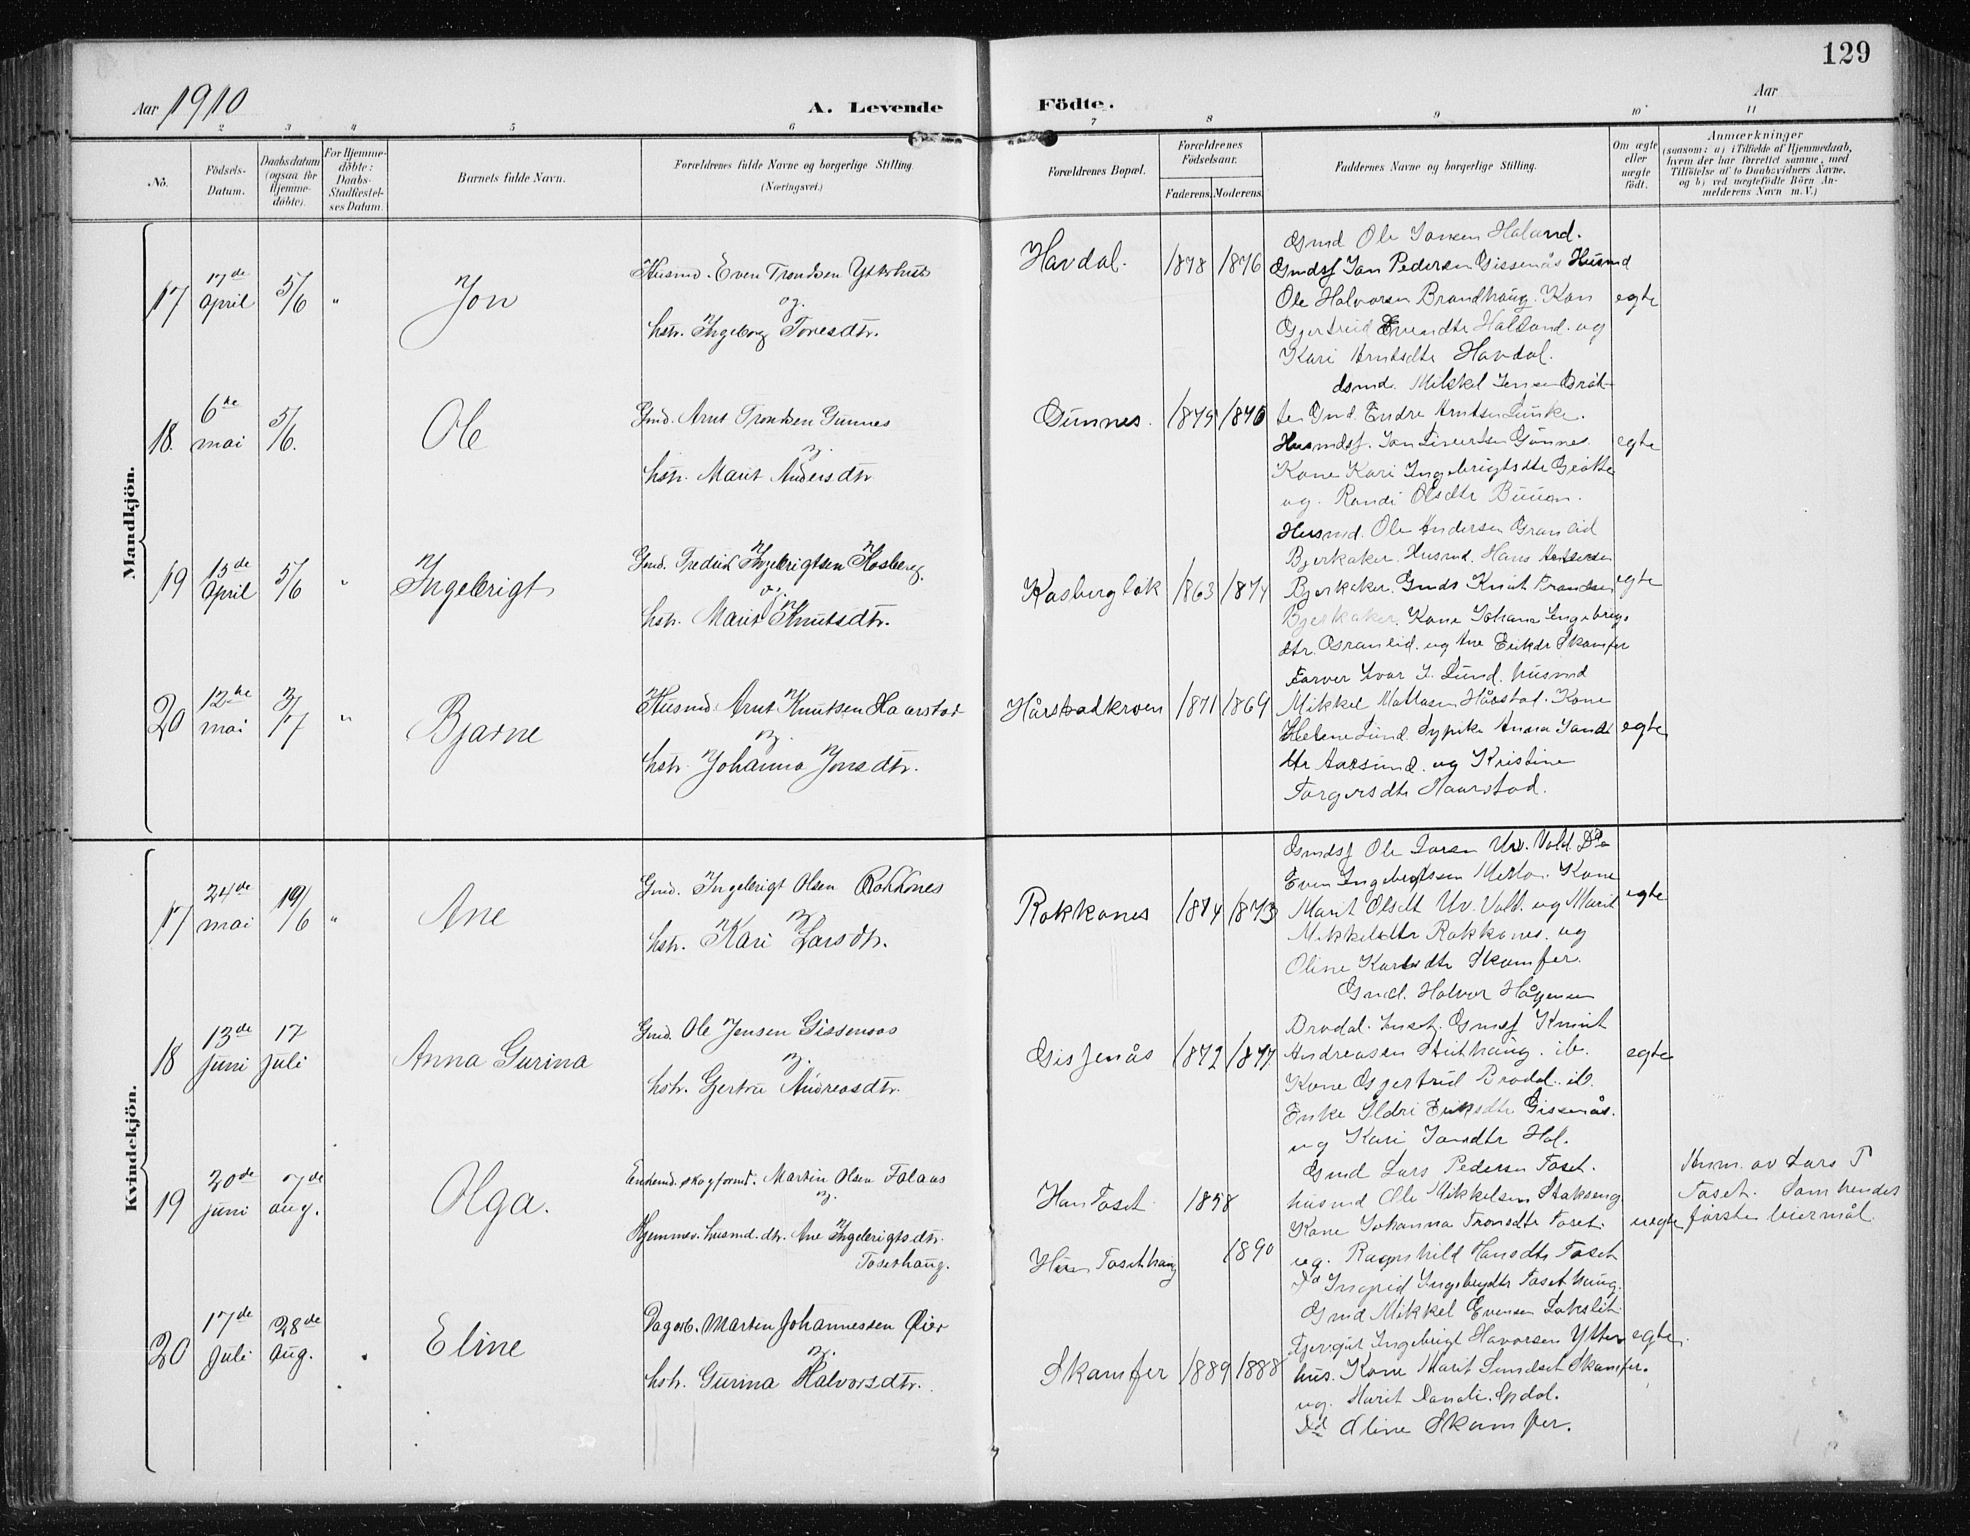 129
Aar 1910
A. Levende
Födte.
Aar
2 3 4 5 6 7 8 9 10 11
No.
Födsels-
Datum.
Daabsdatum
(ogsaa for
Hjemme-
döbte).
For Hjemme-
döbte:
Daabs-
Stadfæstel-
ses Datum.
Barnets fulde Navn.
Forældrenes fulde Navne og borgerlige Stilling.
(Næringsvei.)
Forældrenes Bopæl.
Forældrenes
Födselsaar.
Faderens. Moderens.
Faddernes Navne og borgerlige Stilling.
Om ægte
eller
uægte
födt.
Anmærkninger
(saasom: a) i Tilfælde af Hjemmedaab,
hvem der har forrettet samme, med
Tilföielse af to Daabsvidners Navne,
og b) ved uægtefödte Börn An-
melderens Navn m. V.)
Mandkjön.
17
17de
April
5/6
"
Jon
Husmd. Even Trondsen Ytterhus
og
hstr. Ingeborg Toresdtr.
Havdal.
1878 1876
Gmd Ole Jonsen Haland.
Gmdsf Jon Pedersen Gissenås Husmd
Ole Halvorsen Brandhaug. Kon
Gjertrud Evendtr Haltand. og
Kari Arntsdtr Havdal.
egte
18.
6te
mai
5/6.
Ole
Gmd. Arnt Trondsen Gunnes
og
hstr. Marit Andersdtr
Gunnes.
1875 1876
Gmd. Mikkel Jensen
Gmd. Endre Arntsen
Husmdsf. Jon Sivertsen Gunnes.
Kone Kari Ingebrigtsdtr
og. Randi Olsdtr
egte
19
15de
April
5/6
"
Ingebrigt
Gmd. Fredrik Ingebrigtsen Kosberg.
og
hstr. Marit Knutsdtr.
Kosbergløk
1863 1874
Husmd. Ole Andersen Granlid
Bjerkaker. Husmd. Hans Andersen
Bjerkaker. Gmds Knut Trondsen
Bjerkaker. Kone Johana Ingebrigs
dtr. Granlid. og Ane Eriksdr Skamfer
egte
20
12te
mai
3/7
"
Bjarne
Husmd. Arnt Knutsen Haarstad
og.
hstr. Johanna Jonsdtr.
Hårstadkroen
1871 1869
Farver Ivar J. Lund. husmd
Mikkel Matiasen Hårstad. Kone
Helene Lund. Sypike Anna Jons
dtr Aarsund. og Kristine
Torgersdtr Haarstad.
egte
Kvindekjön.
17
24de
mai
19/6
"
Ane
Gmd. Ingebrigt Olsen Rokkones
og
hstr. Kari Larsdtr.
Rokkones
1874 1873
Gmdsf Ole Larsen Uv. Vold. Do
Even Ingebrigtsen Merlo. Kone
Marit Olsdt Uv. Vold. og Marit
Mikkelsdtr Rokkones. og
Oline Karlsdtr Skamfer.
egte
18
13de
juni
17
juli
Anna Gurina
Gmd. Ole Jensen Gissenaas
og.
hstr. Gjertru Andreasdtr.
Gissenås
1872 1877
Gmd. Halvor Hågensen
Brodal. Inset. Gmdsf Knut
Andreasen Stuthaug. ib.
Kone Gjertrud Brodal. ib.
Enke Ildri Eriksdtr Gissenås.
og Kari Jonsdtr Hol.
egte
19
20de
juni
7de
aug.
Olga.
Enkemd. skogformd. Martin Olsen Folaas
og.
Hjemmev. husmd.dtr. Ane Ingebrigtsdtr.
Tosethaug.
Han Toset
Hun Tosethaug
1858
1890
Gmd Lars Pedersen Toset.
husmd Ole Mikkelsen Stakseng
Kone Johanna Tronsdtr Toset.
og. Ragnhild Hansdtr Toset
Do Ingrid Ingebrigtsdtr Tosethaug.
uegte
Anm. av Lars P
Toset. Som hendes
første leiermål.
20
17de
Juli
28de
Aug.
Eline
Dagarb. Marten Johannesen Øier
og.
hstr. Gurina Halvorsdtr.
Skamfer
1889 1888
Gmd Mikkel Evensen Lokslit
Ingebrigt Havorsen Ytter
hus. Kone Marit Skamfer.
og. Marit
Do Oline Skamfer.
egte.